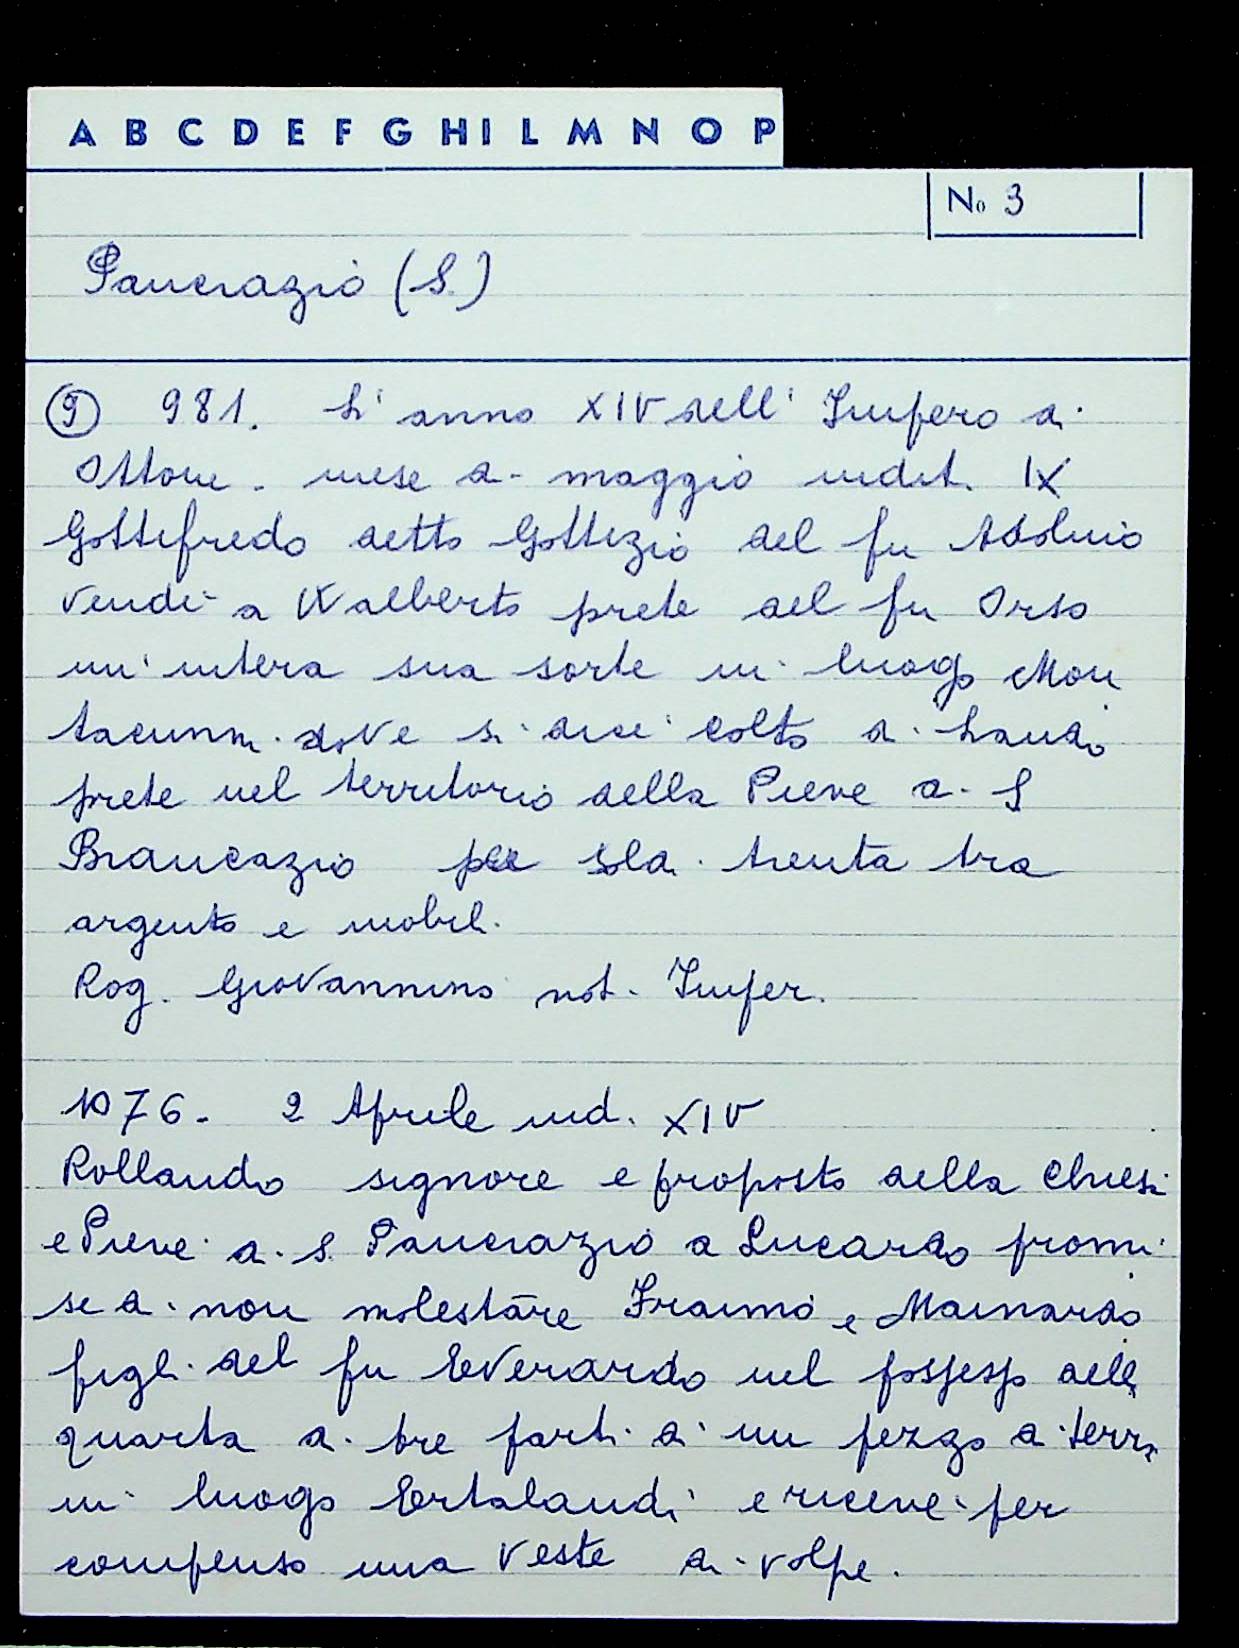 A B C D E F G H I L M N O P
No 3
Pancrazio (S.)
9 981. L'anno XIV dell' Impero di
Ottone. mese di maggio indit. IX
Gottifredo detto Gottizio del fu
vendè a Walberto prete del fu Orso
un'intera sua sorte in luogo Mon
dove si dice Colto di Lando
prete nel territorio della Pieve di S
Brancazio per soldi trenta tra
argento e mobili.
Rog. Giovannino not. Imper.
1076. 2 Aprile ind. XIV
Rollando signore e proposto della Chiesa
e Pieve di S. Pancrazio a Lucardo promi
se di non molestare Fraimo e Mainardo
figli del fu Everardo nel possesso della
quarta di tre parti di un pezzo di terra
in luogo Ertalandi e riceve per
compenso una veste di volpe.